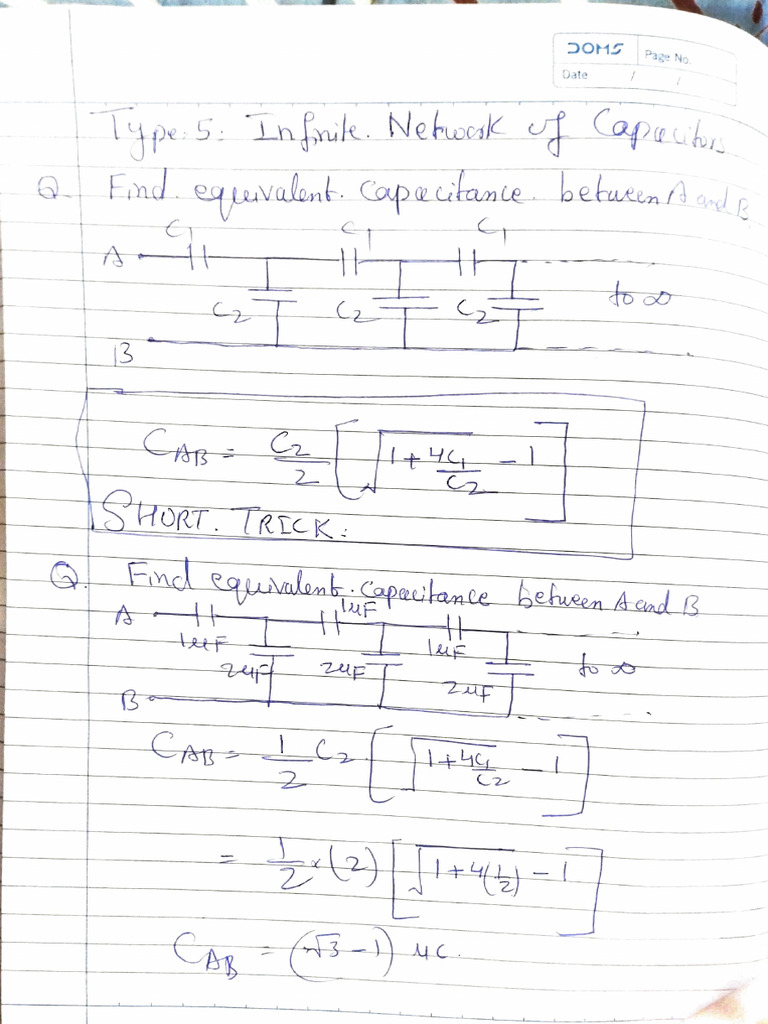 DOMS Page No.
Date / /
Type 5: Infinite Network of Capacitors
Q. Find equivalent capacitance between A and B
C₁ C₁ C₁
A
C₂ C₂ C₂ to ∞
B
C_AB = C₂/2 [√(1 + 4C₁/C₂) - 1]
SHORT TRICK:
Q. Find equivalent capacitance between A and B
A 1μF
1μF 1μF
2μF 2μF 2μF to ∞
B
C_AB = 1/2 C₂ [√(1 + 4C₁/C₂) - 1]
= 1/2 × (2) [√(1 + 4(1/2)) - 1]
C_AB = (√3 - 1) μC.